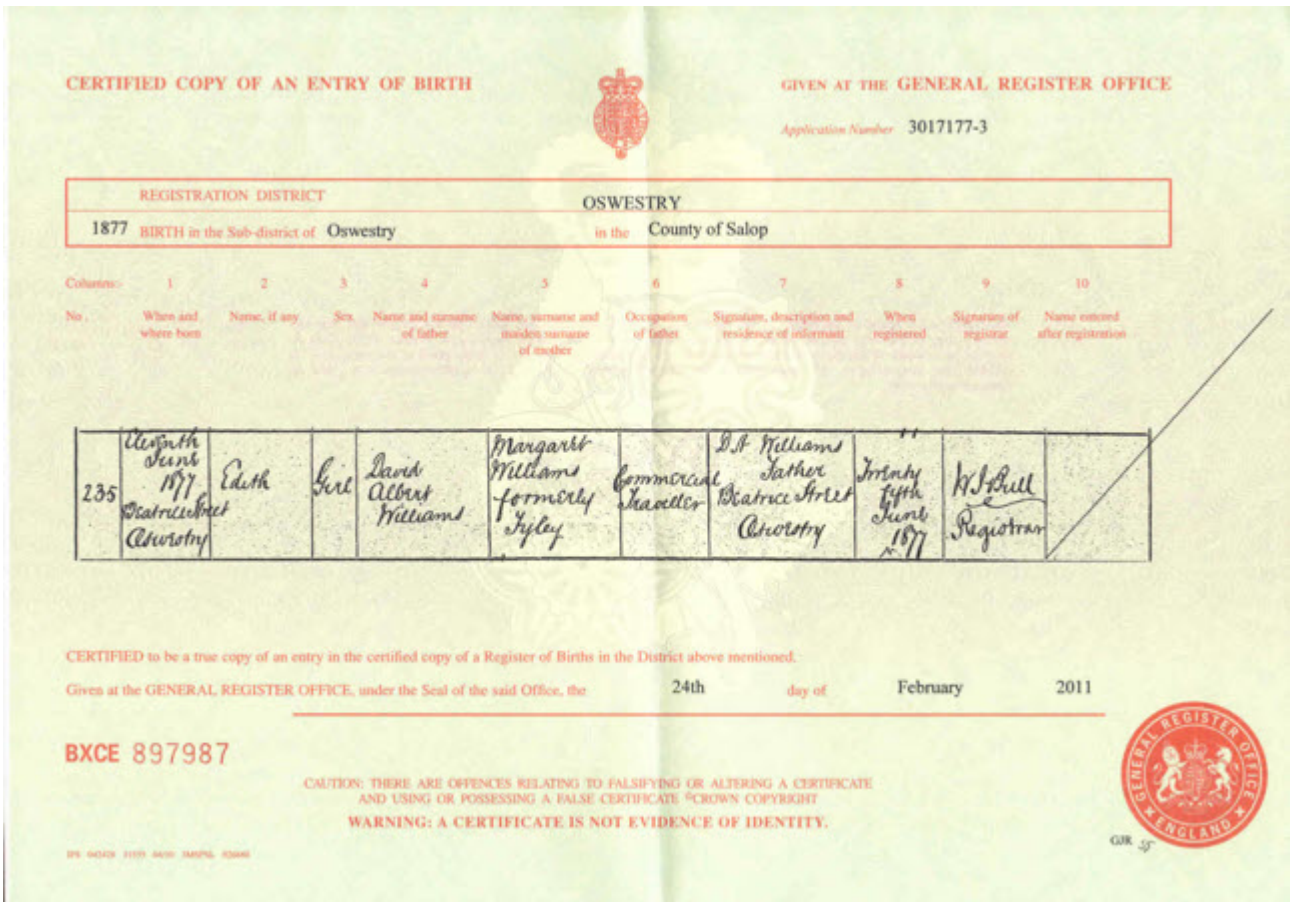 CERTIFIED COPY OF AN ENTRY OF BIRTH
GIVEN AT THE GENERAL REGISTER OFFICE
Application Number 3017177-3
REGISTRATION DISTRICT OSWESTRY
1877 BIRTH in the Sub-district of Oswestry in the County of Salop
Columns:- 1 2 3 4 5 6 7 8 9 10
No. When and where born
Name, if any
Sex
Name and surname of father
Name, surname and maiden surname of mother
Occupation of father
Signature, description and residence of informant
When registered
Signature of registrar
Name entered after registration
235
Eleventh
June
1877
Beatrice Street
Oswestry
Edith
Girl
David
Albert
Williams
Margaret
Williams
formerly
Tyley
Commercial
Traveller
D.A Williams
Father
Beatrice Street
Oswestry
Twenty
fifth
June
1877
W.J Bull
Registrar
CERTIFIED to be a true copy of an entry in the certified copy of a Register of Births in the District above mentioned.
Given at the GENERAL REGISTER OFFICE, under the Seal of the said Office, the 24th day of February 2011
BXCE 897987
CAUTION: THERE ARE OFFENCES RELATING TO FALSIFYING OR ALTERING A CERTIFICATE
AND USING OR POSSESSING A FALSE CERTIFICATE ©CROWN COPYRIGHT
WARNING: A CERTIFICATE IS NOT EVIDENCE OF IDENTITY.
GENERAL REGISTER OFFICE
ENGLAND
GJR